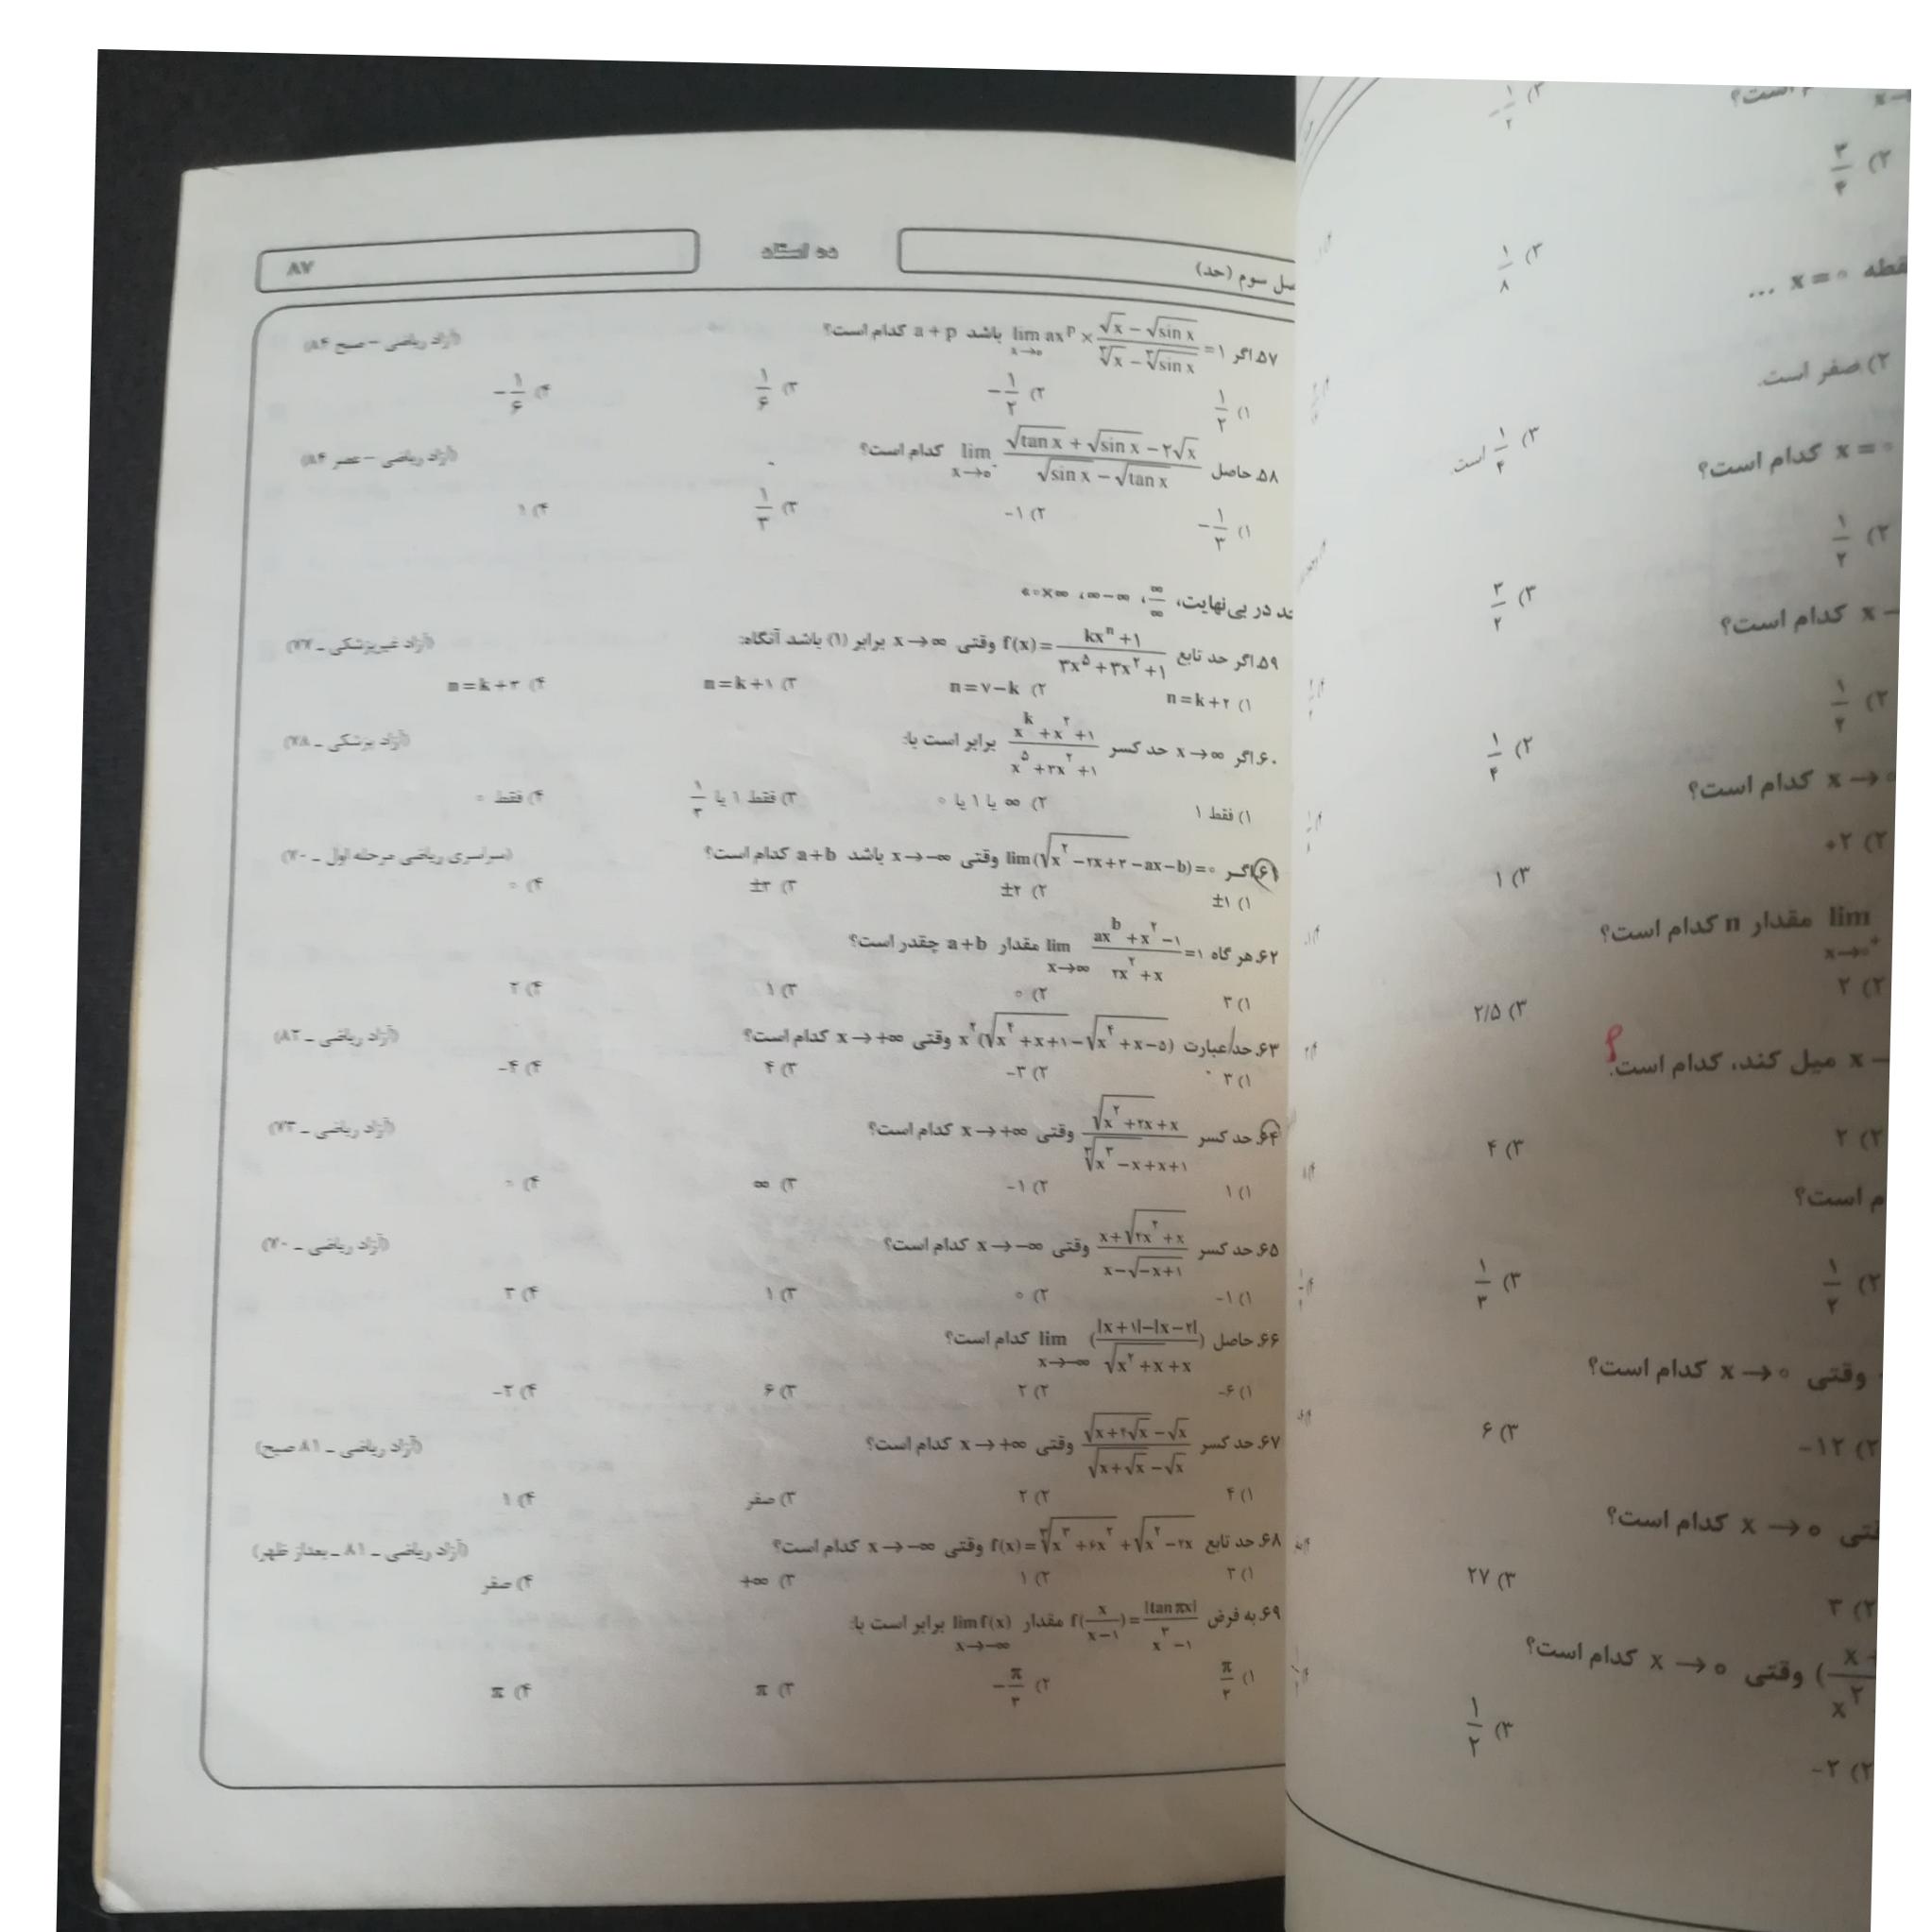 فصل سوم (حد)
ده استاد
۸۷
۵۷. اگر lim x→۰ ax^p × (√x − √sin x)/(∛x − ∛sin x) = ۱ باشد a + p کدام است؟ (آزاد ریاضی – صبح ۸۴)
۱) ۱/۲ ۲) −۱/۲ ۳) ۱/۶ ۴) −۱/۶
۵۸. حاصل lim x→۰ (√tan x + √sin x − ۲√x)/(√sin x − √tan x) کدام است؟ (آزاد ریاضی – عصر ۸۴)
۱) −۱/۳ ۲) −۱ ۳) ۱/۳ ۴) ۱
حد در بی‌نهایت، ∞/∞، ∞−∞، «۰×∞»
۵۹. اگر حد تابع f(x) = (kxⁿ + ۱)/(۳x⁵ + ۳x² + ۱) وقتی x→∞ برابر (۱) باشد آنگاه: (آزاد غیرپزشکی ـ ۷۷)
۱) n = k + ۲ ۲) n = ۷ − k ۳) n = k + ۱ ۴) n = k + ۳
۶۰. اگر x→∞ حد کسر (x^k + x² + ۱)/(x⁵ + ۳x² + ۱) برابر است با: (آزاد پزشکی ـ ۷۸)
۱) فقط ۱ ۲) ∞ یا ۱ یا ۰ ۳) فقط ۱ یا ۱/۳ ۴) فقط ۰
۶۱. اگر lim(√(x² − ۲x + ۳) − ax − b) = ۰ وقتی x→−∞ باشد a + b کدام است؟ (سراسری ریاضی مرحله اول ـ ۷۰)
۱) ±۱ ۲) ±۲ ۳) ±۳ ۴) ۰
۶۲. هر گاه lim x→∞ (ax^b + x² − ۱)/(۲x² + x) = ۱ مقدار a + b چقدر است؟
۱) ۳ ۲) ۰ ۳) ۱ ۴) ۲
۶۳. حد عبارت x²(√(x⁴ + x + ۱) − √(x⁴ + x − ۵)) وقتی x→+∞ کدام است؟ (آزاد ریاضی ـ ۸۲)
۱) ۳ ۲) −۳ ۳) ۴ ۴) −۴
۶۴. حد کسر (√(x² + ۲x) + x)/(∛(x³ − x) + x + ۱) وقتی x→+∞ کدام است؟ (آزاد ریاضی ـ ۷۳)
۱) ۱ ۲) −۱ ۳) ∞ ۴) ۰
۶۵. حد کسر (x + √(۲x² + x))/(x − √(−x + ۱)) وقتی x→−∞ کدام است؟ (آزاد ریاضی ـ ۷۰)
۱) −۱ ۲) ۰ ۳) ۱ ۴) ۳
۶۶. حاصل lim x→−∞ ((|x + ۱| − |x − ۲|)/(√(x² + x) + x)) کدام است؟
۱) −۶ ۲) ۲ ۳) ۶ ۴) −۲
۶۷. حد کسر (√(x + ۲√x) − √x)/(√(x + √x) − √x) وقتی x→+∞ کدام است؟ (آزاد ریاضی ـ ۸۱ صبح)
۱) ۴ ۲) ۲ ۳) صفر ۴) ۱
۶۸. حد تابع f(x) = ∛(x³ + ۶x²) + √(x² − ۲x) وقتی x→−∞ کدام است؟ (آزاد ریاضی ـ ۸۱ ـ بعداز ظهر)
۱) ۳ ۲) ۱ ۳) +∞ ۴) صفر
۶۹. به فرض f(x/(x − ۱)) = |tan πx|/(x³ − ۱) مقدار lim x→−∞ f(x) برابر است با:
۱) π/۳ ۲) −π/۳ ۳) π ۴) π
است؟
۲) ۳/۴
۳) ۱/۸
نقطه x = ۰ ...
۲) صفر است.
۳) ۱/۴ است.
x = ۰ کدام است؟
۲) ۱/۲
۳) ۳/۲
کدام است؟
۲) ۱/۲
۳) ۱/۴
x→۰ کدام است؟
۲) ۲+
۳) ۱
lim x→۰⁺ مقدار n کدام است؟
۲) ۲ ۳) ۲/۵
x میل کند، کدام است.
۲) ۲ ۳) ۴
است؟
۲) ۱/۲ ۳) ۱/۳
وقتی x→۰ کدام است؟
۲) −۱۲ ۳) ۶
x→۰ کدام است؟
۲) ۳ ۳) ۲۷
وقتی x→۰ کدام است؟
۲) −۲ ۳) ۱/۲